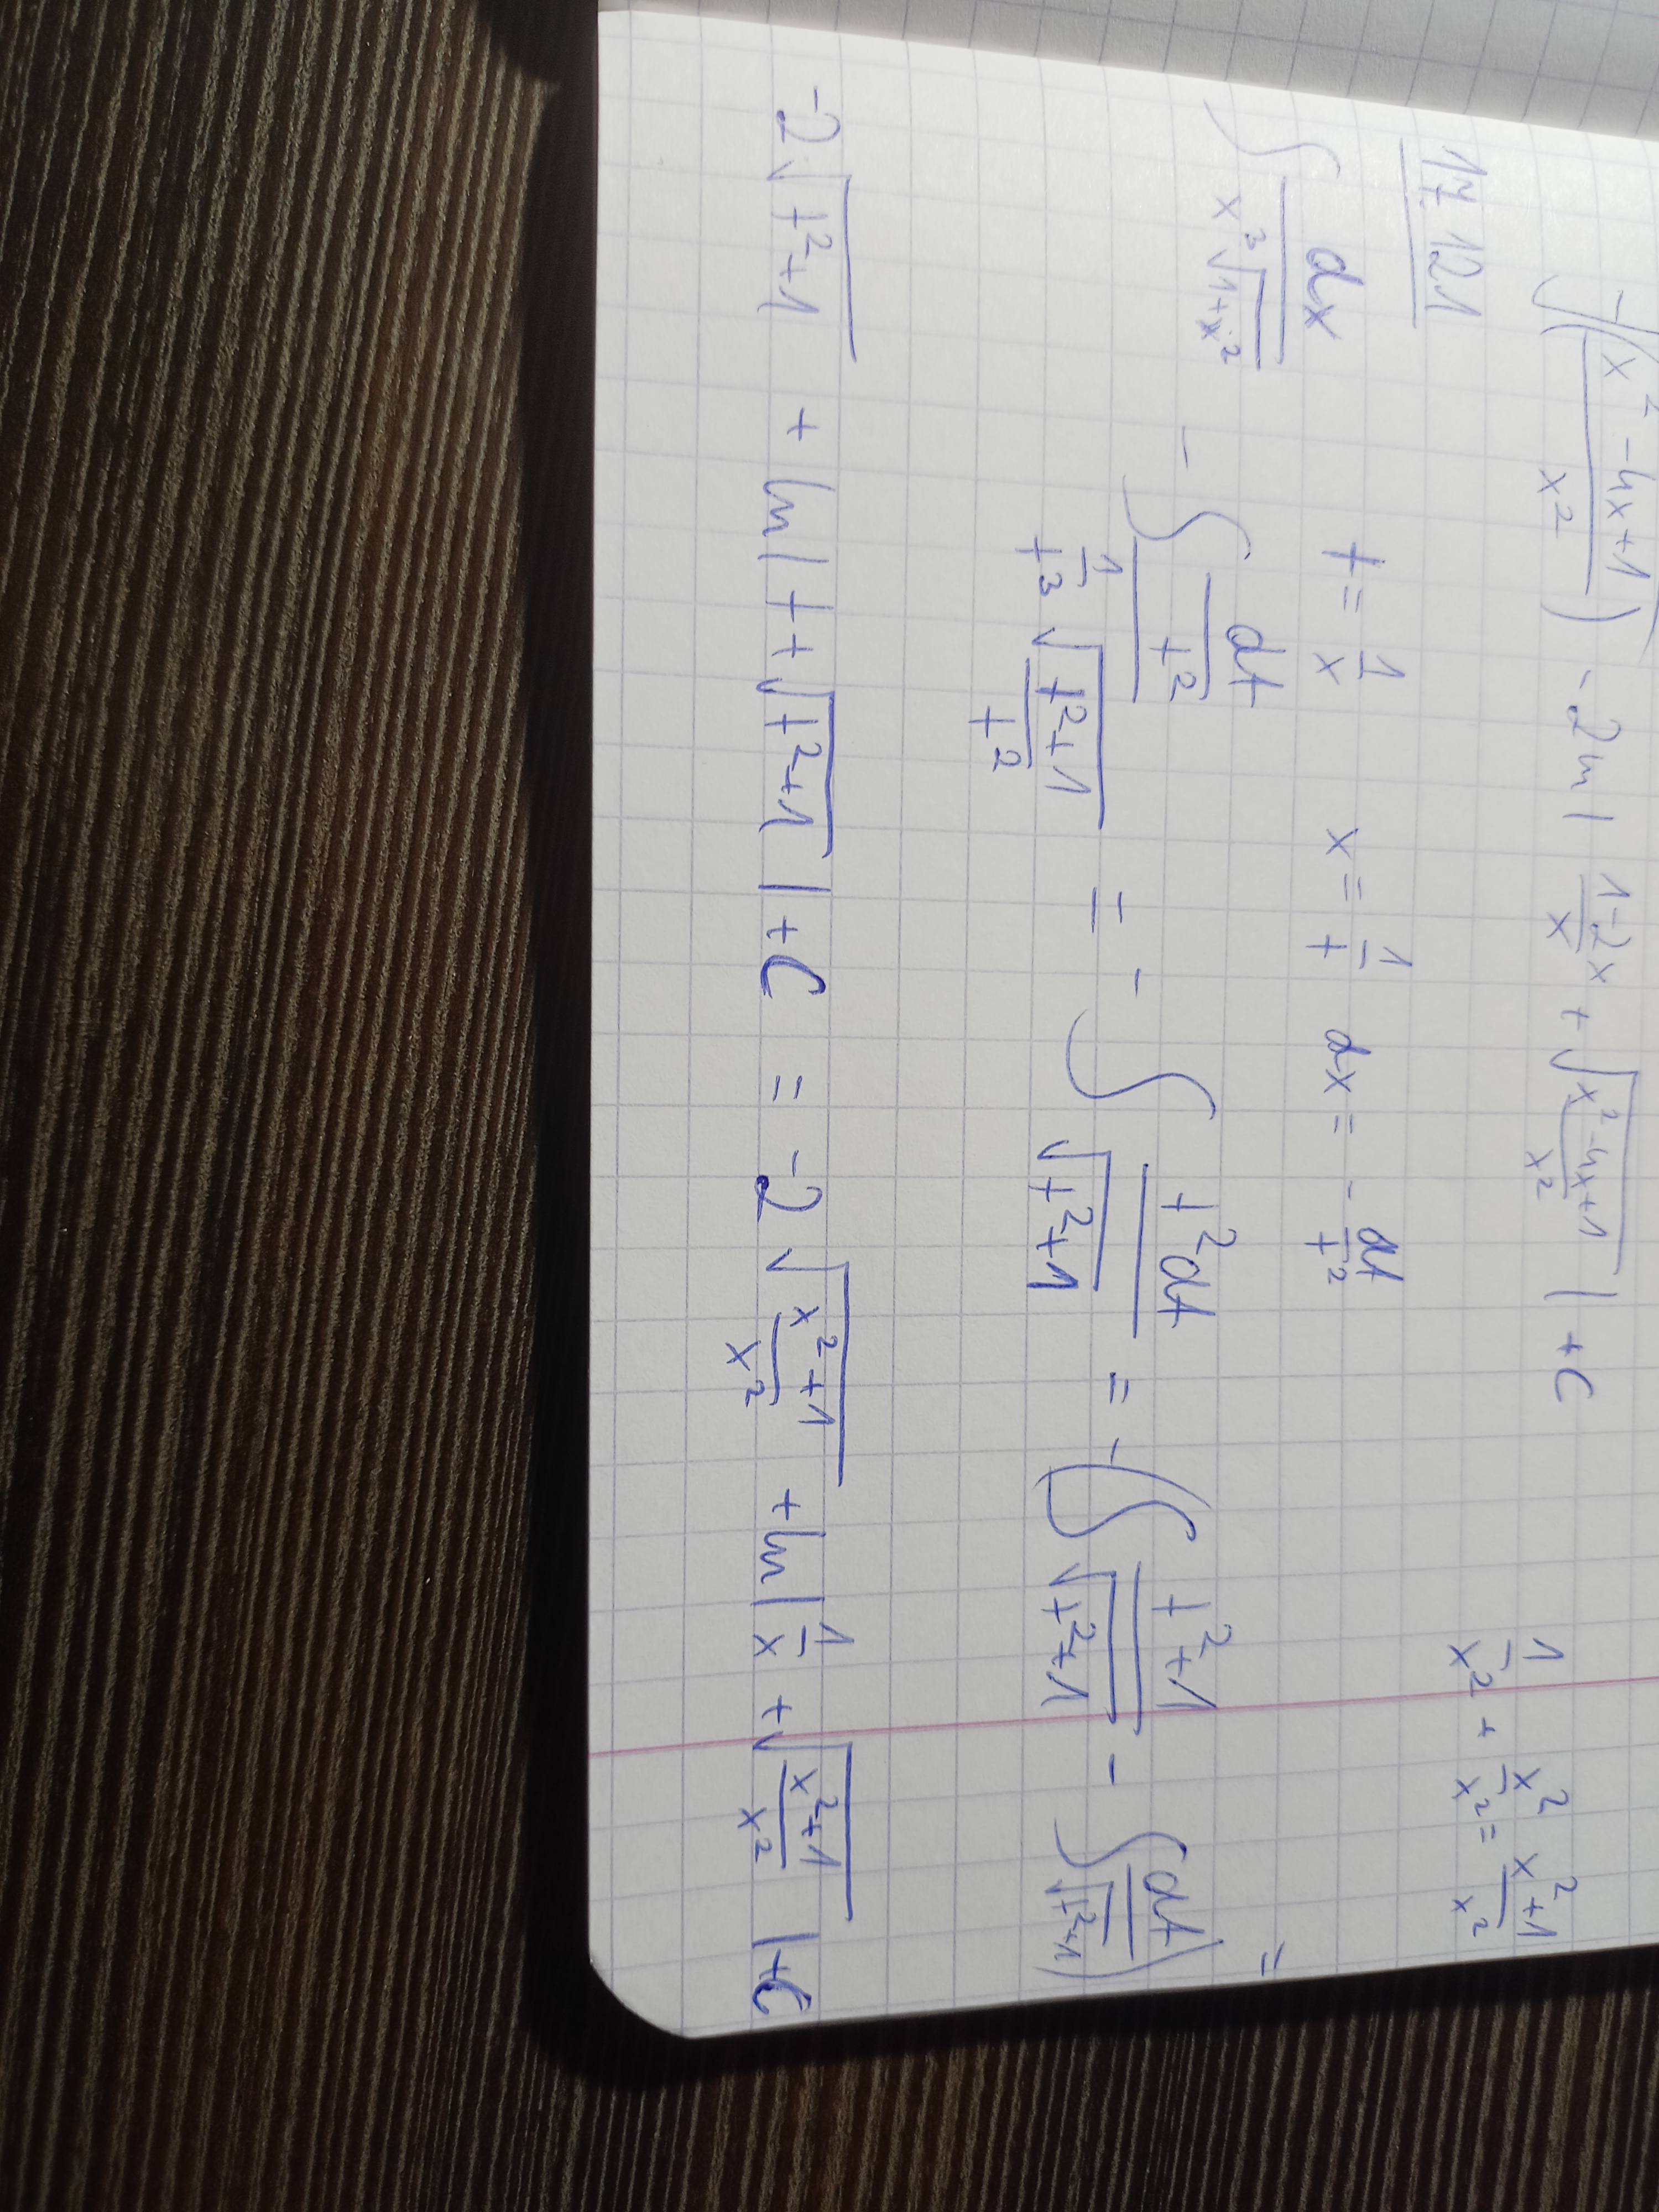 √((x²-4x+1)/x²) - 2ln|(1-2x)/x + √((x²-4x+1)/x²)| + C
17.121
1/x² + x²/x² = (x²+1)/x²
∫ dx/(x³√(1+x²)) t = 1/x x = 1/t dx = -dt/t²
-∫ (dt/t²)/((1/t³)√((t²+1)/t²)) = -∫ t²dt/√(t²+1) = -(∫ (t²+1)/√(t²+1) - ∫ dt/√(t²+1)) =
-2√(t²+1) + ln|t+√(t²+1)| + C = -2√((x²+1)/x²) + ln|1/x + √((x²+1)/x²)| + C